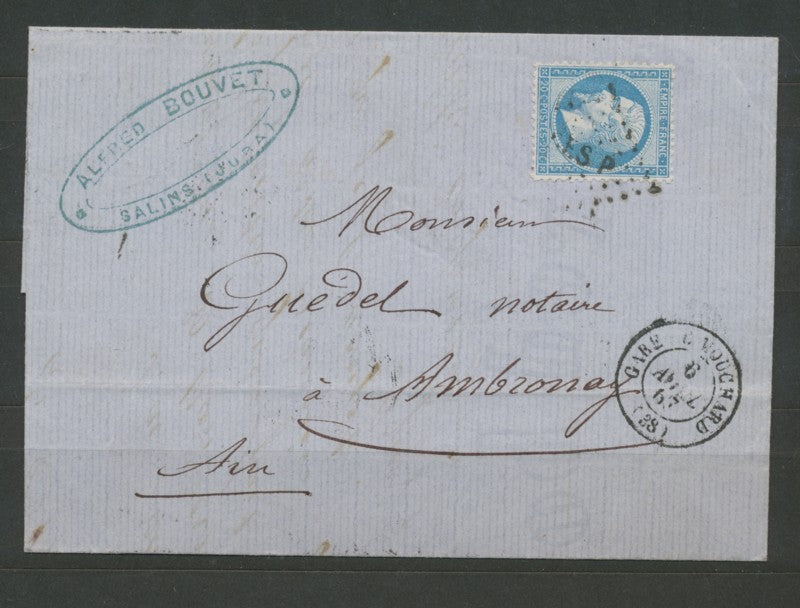 ALFRED BOUVET
SALINS (JURA)
EMPIRE FRANC
20 C POSTES 20 C
S.P.
Monsieur
Guédel notaire
à Ambronay
Ain
GARE MOUCHARD
6
AVRIL
(38)